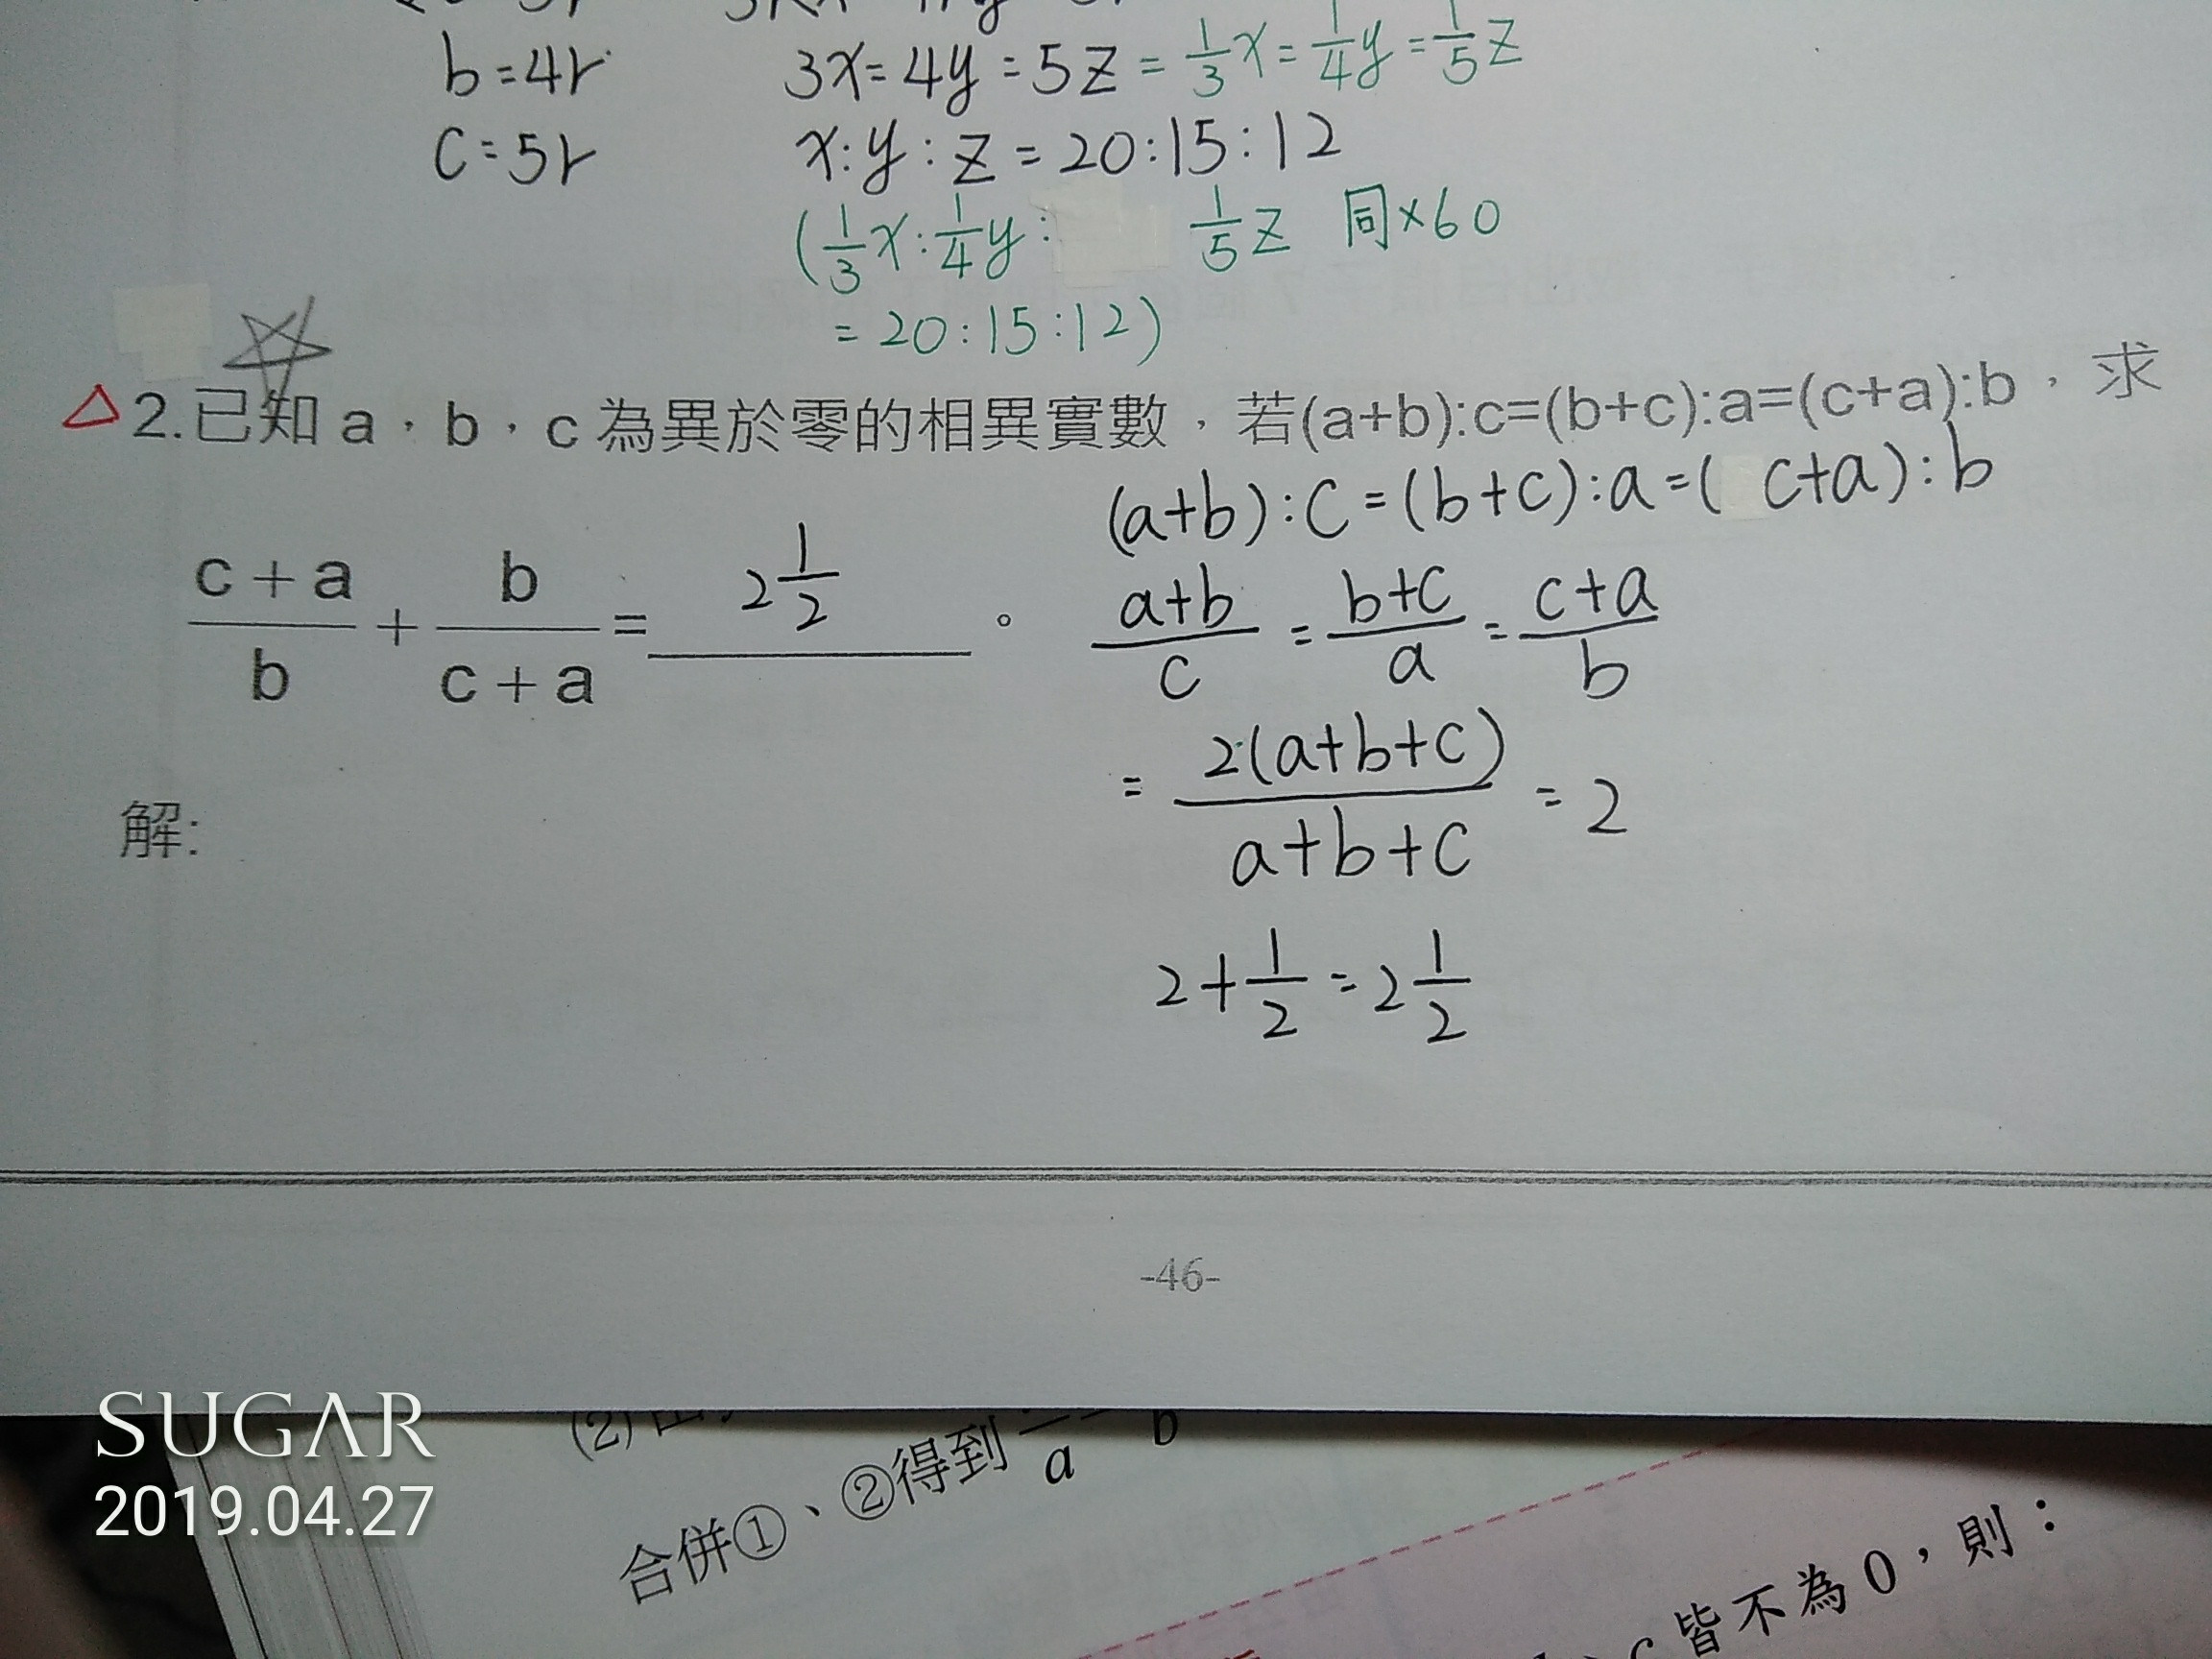 b=4r
3x=4y=5z=1/3x=1/4y=1/5z
c=5r
x:y:z=20:15:12
(1/3x:1/4y: 1/5z 同×60
=20:15:12)
△2.已知 a,b,c 為異於零的相異實數,若(a+b):c=(b+c):a=(c+a):b,求
(a+b):c=(b+c):a=( c+a):b
(c+a)/b + b/(c+a) = 2 1/2 。
(a+b)/c = (b+c)/a = (c+a)/b
= 2(a+b+c)/(a+b+c) = 2
解:
2+1/2=2 1/2
-46-
SUGAR
2019.04.27
(2)
合併①、②得到 a b
c 皆不為 0,則: